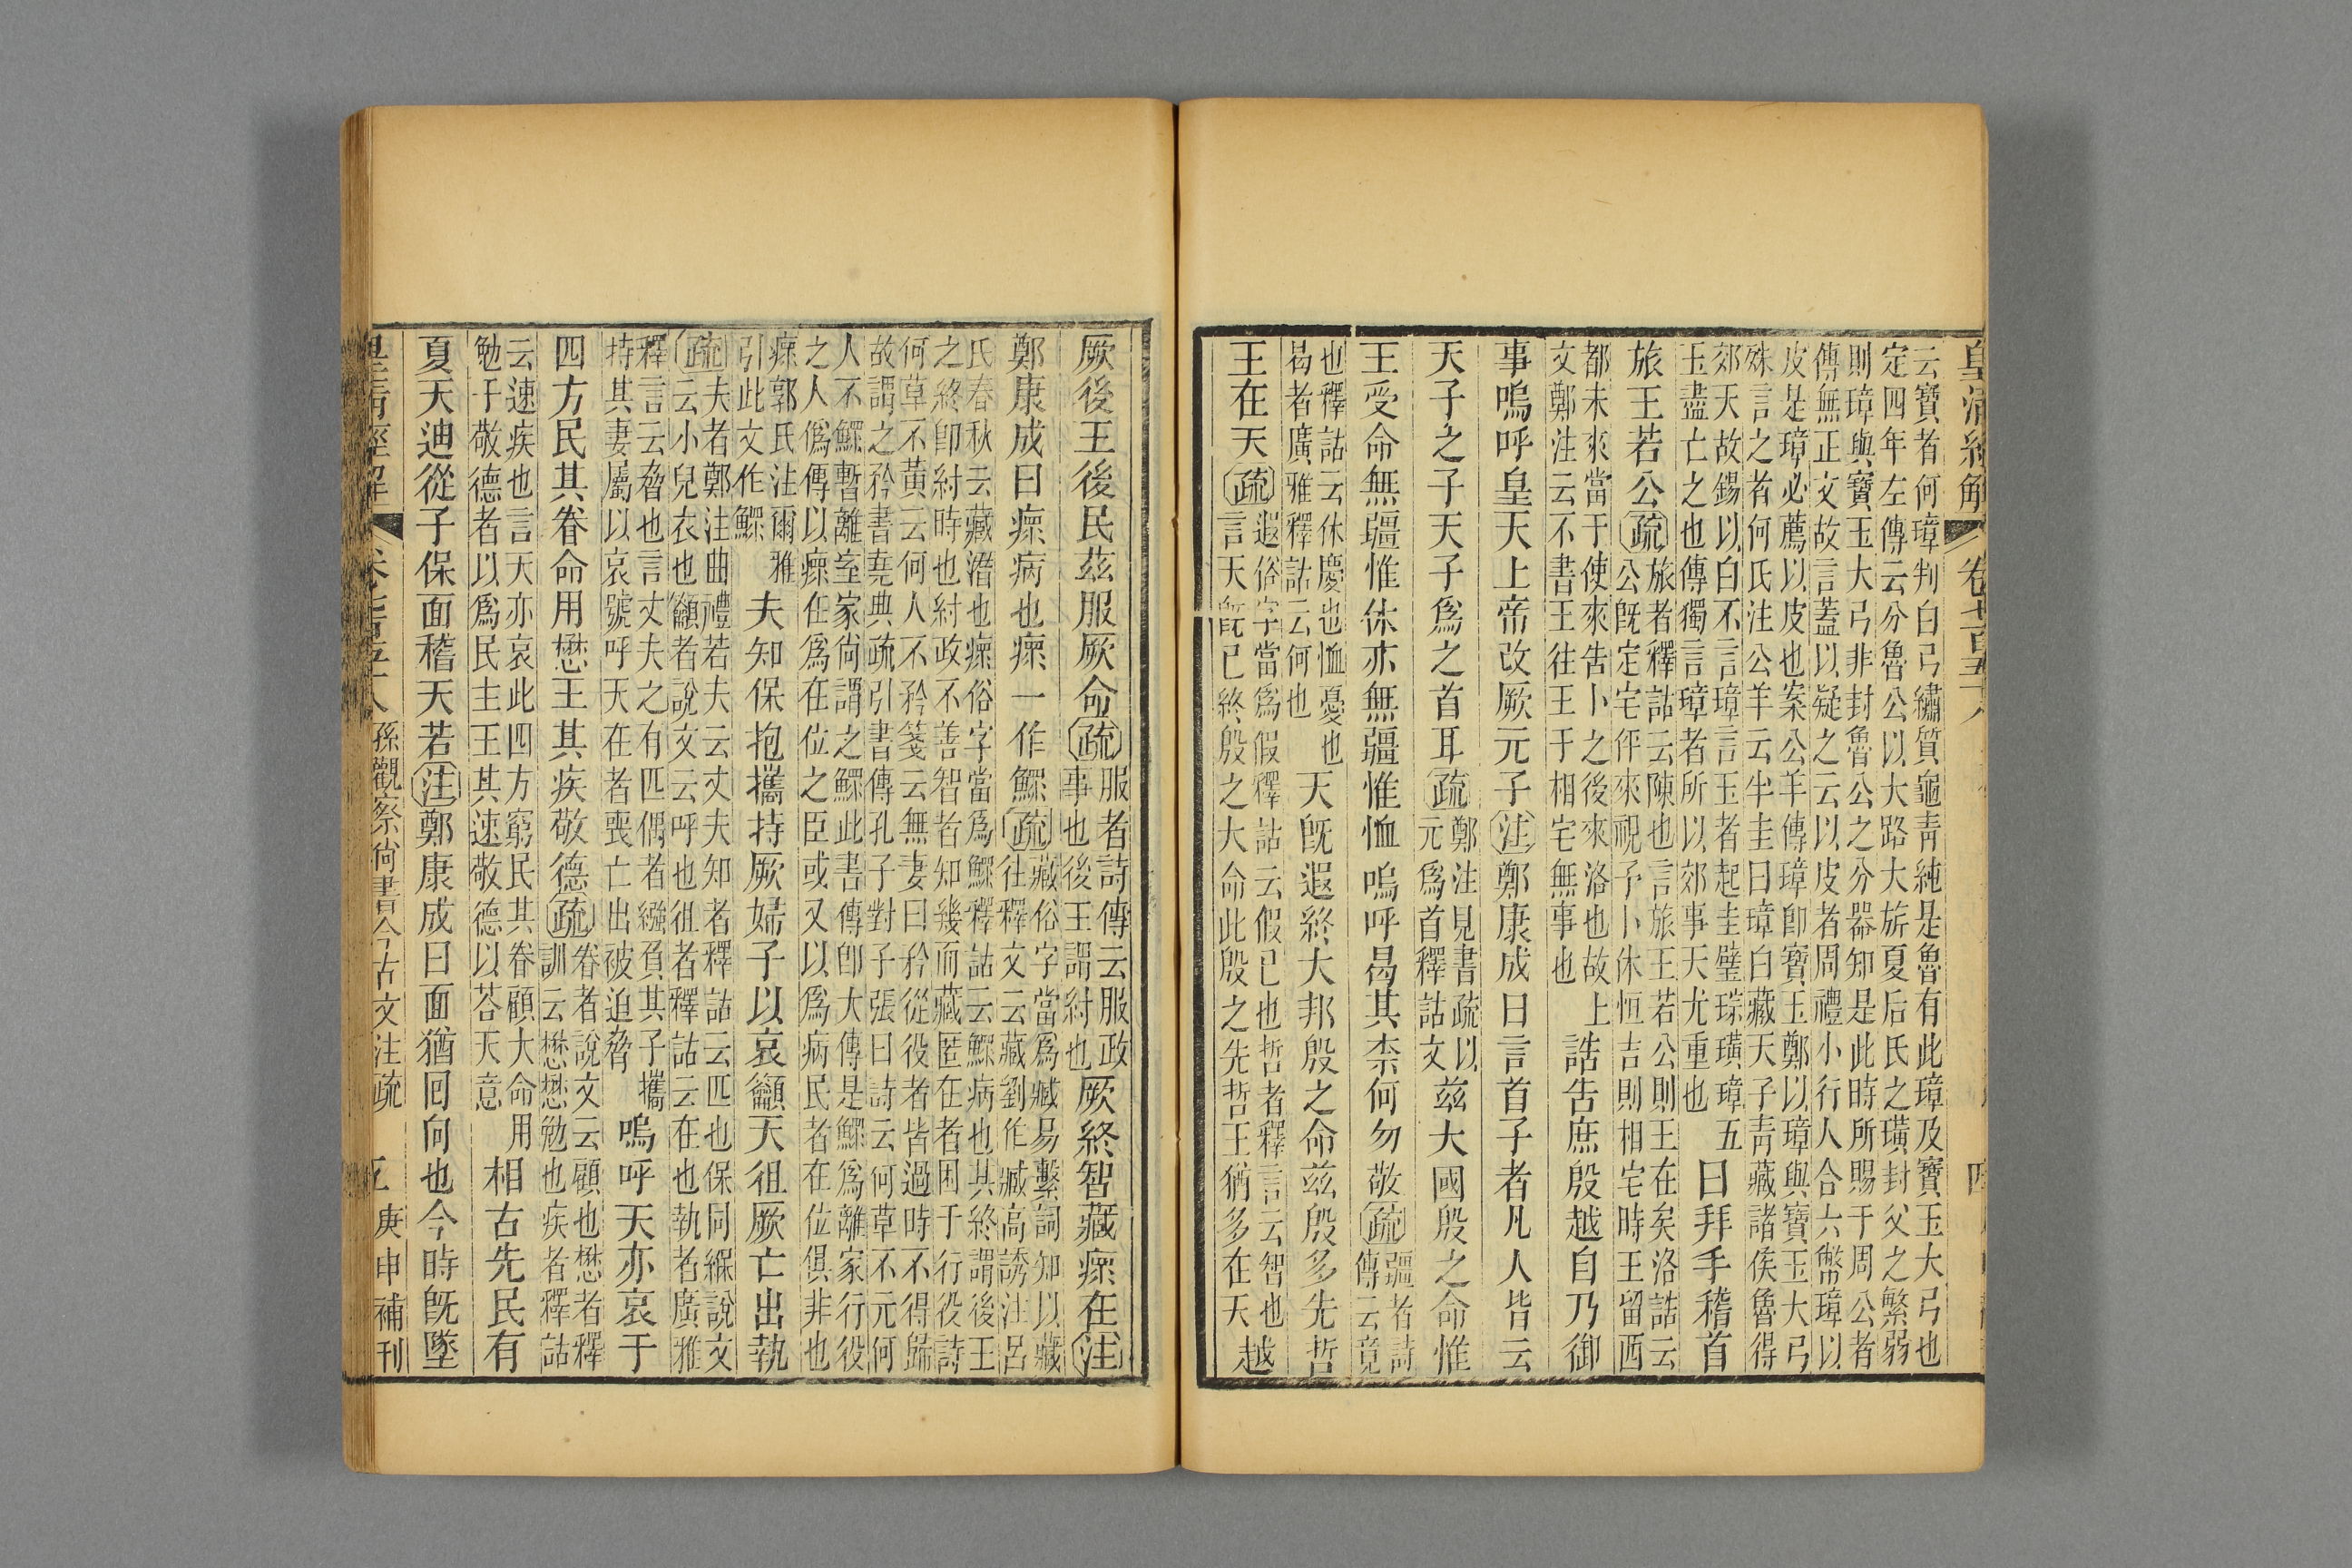 皇清經解 卷七百五十八
云寶者何璋判白弓繡質龜靑純是魯有此璋及寶玉大弓也
定四年左傳云分魯公以大路大旂夏后氏之璜封父之繁弱
則璋與寶玉大弓非封魯公之分器知是此時所賜于周公者
傳無正文故言蓋以疑之云以皮者周禮小行人合六幣璋以
皮是璋必薦以皮也案公羊傳璋卽寶玉鄭以璋與寶玉大弓
殊言之者何氏注公羊云半圭曰璋白藏天子靑藏諸侯魯得
郊天故錫以白不言璋言玉者起圭璧琮璜璋五
玉盡亡之也傳獨言璋者所以郊事天尤重也
曰拜手稽首
旅王若公疏
旅者釋詁云陳也言旅王若公則王在矣洛誥云
公旣定宅伻來視予卜休恒吉則相宅時王留西
都未來當于使來告卜之後來洛也故上
文鄭注云不書王往王于相宅無事也
誥告庶殷越自乃御
事嗚呼皇天上帝改厥元子注鄭康成曰言首子者凡人皆云
天子之子天子爲之首耳疏
鄭注見書疏以
元爲首釋詁文
茲大國殷之命惟
王受命無疆惟休亦無疆惟恤嗚呼曷其柰何勿敬疏
疆者詩
傳云竟
也釋詁云休慶也恤憂也
曷者廣雅釋詁云何也
天旣遐終大邦殷之命茲殷多先哲
王在天疏
遐俗字當爲假釋詁云假已也哲者釋言云智也
言天旣已終殷之大命此殷之先哲王猶多在天
越
厥後王後民茲服厥命疏
服者詩傳云服政
事也後王謂紂也
厥終智藏瘝在注
鄭康成曰瘝病也瘝一作鰥疏
藏俗字當爲臧易繫詞知以藏
往釋文云藏劉作臧高誘注呂
氏春秋云藏潛也瘝俗字當爲鰥釋詁云鰥病也其終謂後王
之終卽紂時也紂政不善智者知幾而藏匿在者困于行役詩
何草不黃云何人不矜箋云無妻曰矜從役者皆過時不得歸
故謂之矜書堯典疏引書傳孔子對子張曰詩云何草不元何
人不鰥暫離室家尙謂之鰥此書傳卽大傳是鰥爲離家行役
之人僞傳以瘝在爲在位之臣或又以爲病民者在位俱非也
瘝郭氏注爾雅
引此文作鰥
夫知保抱攜持厥婦子以哀籲天徂厥亡出執
疏
夫者鄭注曲禮若夫云丈夫知者釋詁云匹也保同緥說文
云小兒衣也籲者說文云呼也徂者釋詁云在也執者廣雅
釋言云脅也言丈夫之有匹偶者繦負其子攜
持其妻屬以哀號呼天在者喪亡出被迫脅
嗚呼天亦哀于
四方民其眷命用懋王其疾敬德疏
眷者說文云顧也懋者釋
訓云懋懋勉也疾者釋詁
云速疾也言天亦哀此四方窮民其眷顧大命用
勉于敬德者以爲民主王其速敬德以荅天意
相古先民有
夏天迪從子保面稽天若注鄭康成曰面猶囘向也今時旣墜
孫觀察尙書今古文注疏
五
庚申補刊